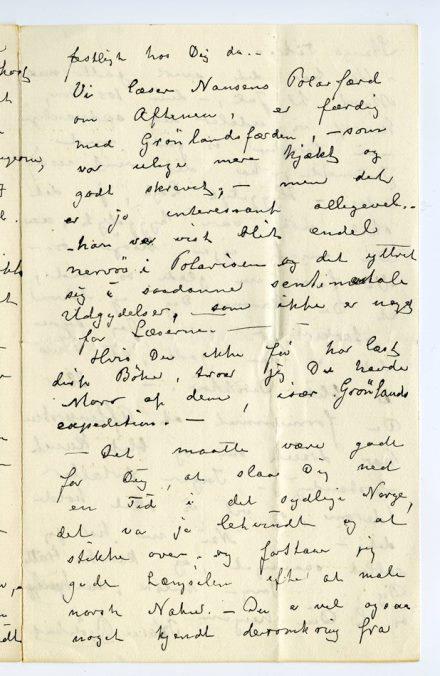 festligt hos Dig da. –
Vi læser Nansens Polarfærd
om Aftenen, er færdig
med Grønlandsfærden, – som
var ulige mere kjækt og
godt skrevet, – men det
er jo interessant allegevel. –
– han var vist blit endel
nervøs i Polarisen og det yttret
sig i saadanne sentimentale
Udgydelser, – som ikke er noget
for Læserne. – –
Hvis Du ikke før har læst
disse Bøker, tror jeg Du havde
Moro af dem, især Grønlands
expedition. –
– Det maatte være godt
for Dig, at slaa Dig ned
en Tid i det sydlige Norge,
det var jo letvindt og at
stikke over. og forstaar jeg
godt Længselen efter at male
norsk Natur. – Du er vel ogsaa
noget kjendt deromkring fra